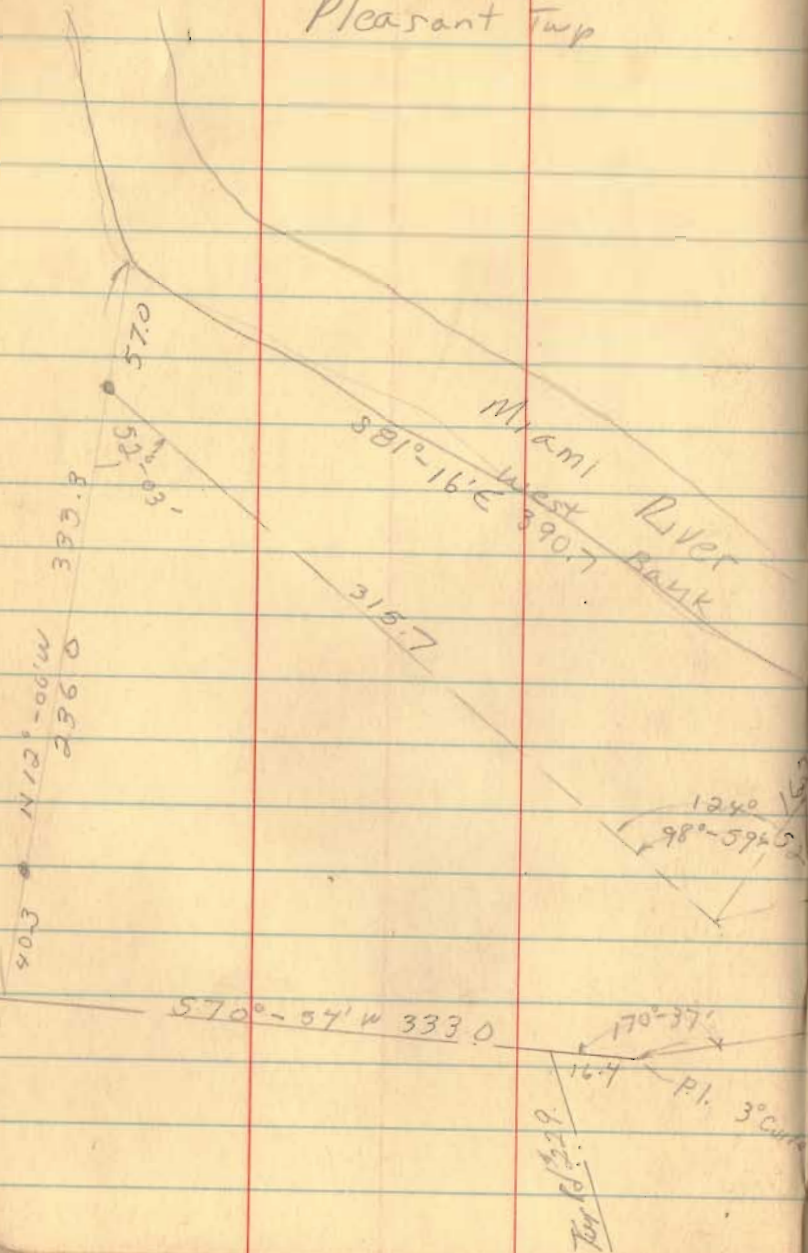 Pleasant Twp
57.0
52°-03'
333.3
N 12°-06'W
236.0
40.3
Miami River
West Bank
S81°-16'E 390.7
315.7
124°
98°-59½
S70°-54'W 333.0
170°-37'
16.4
P.I.
3° Curve
Twp Rd #229